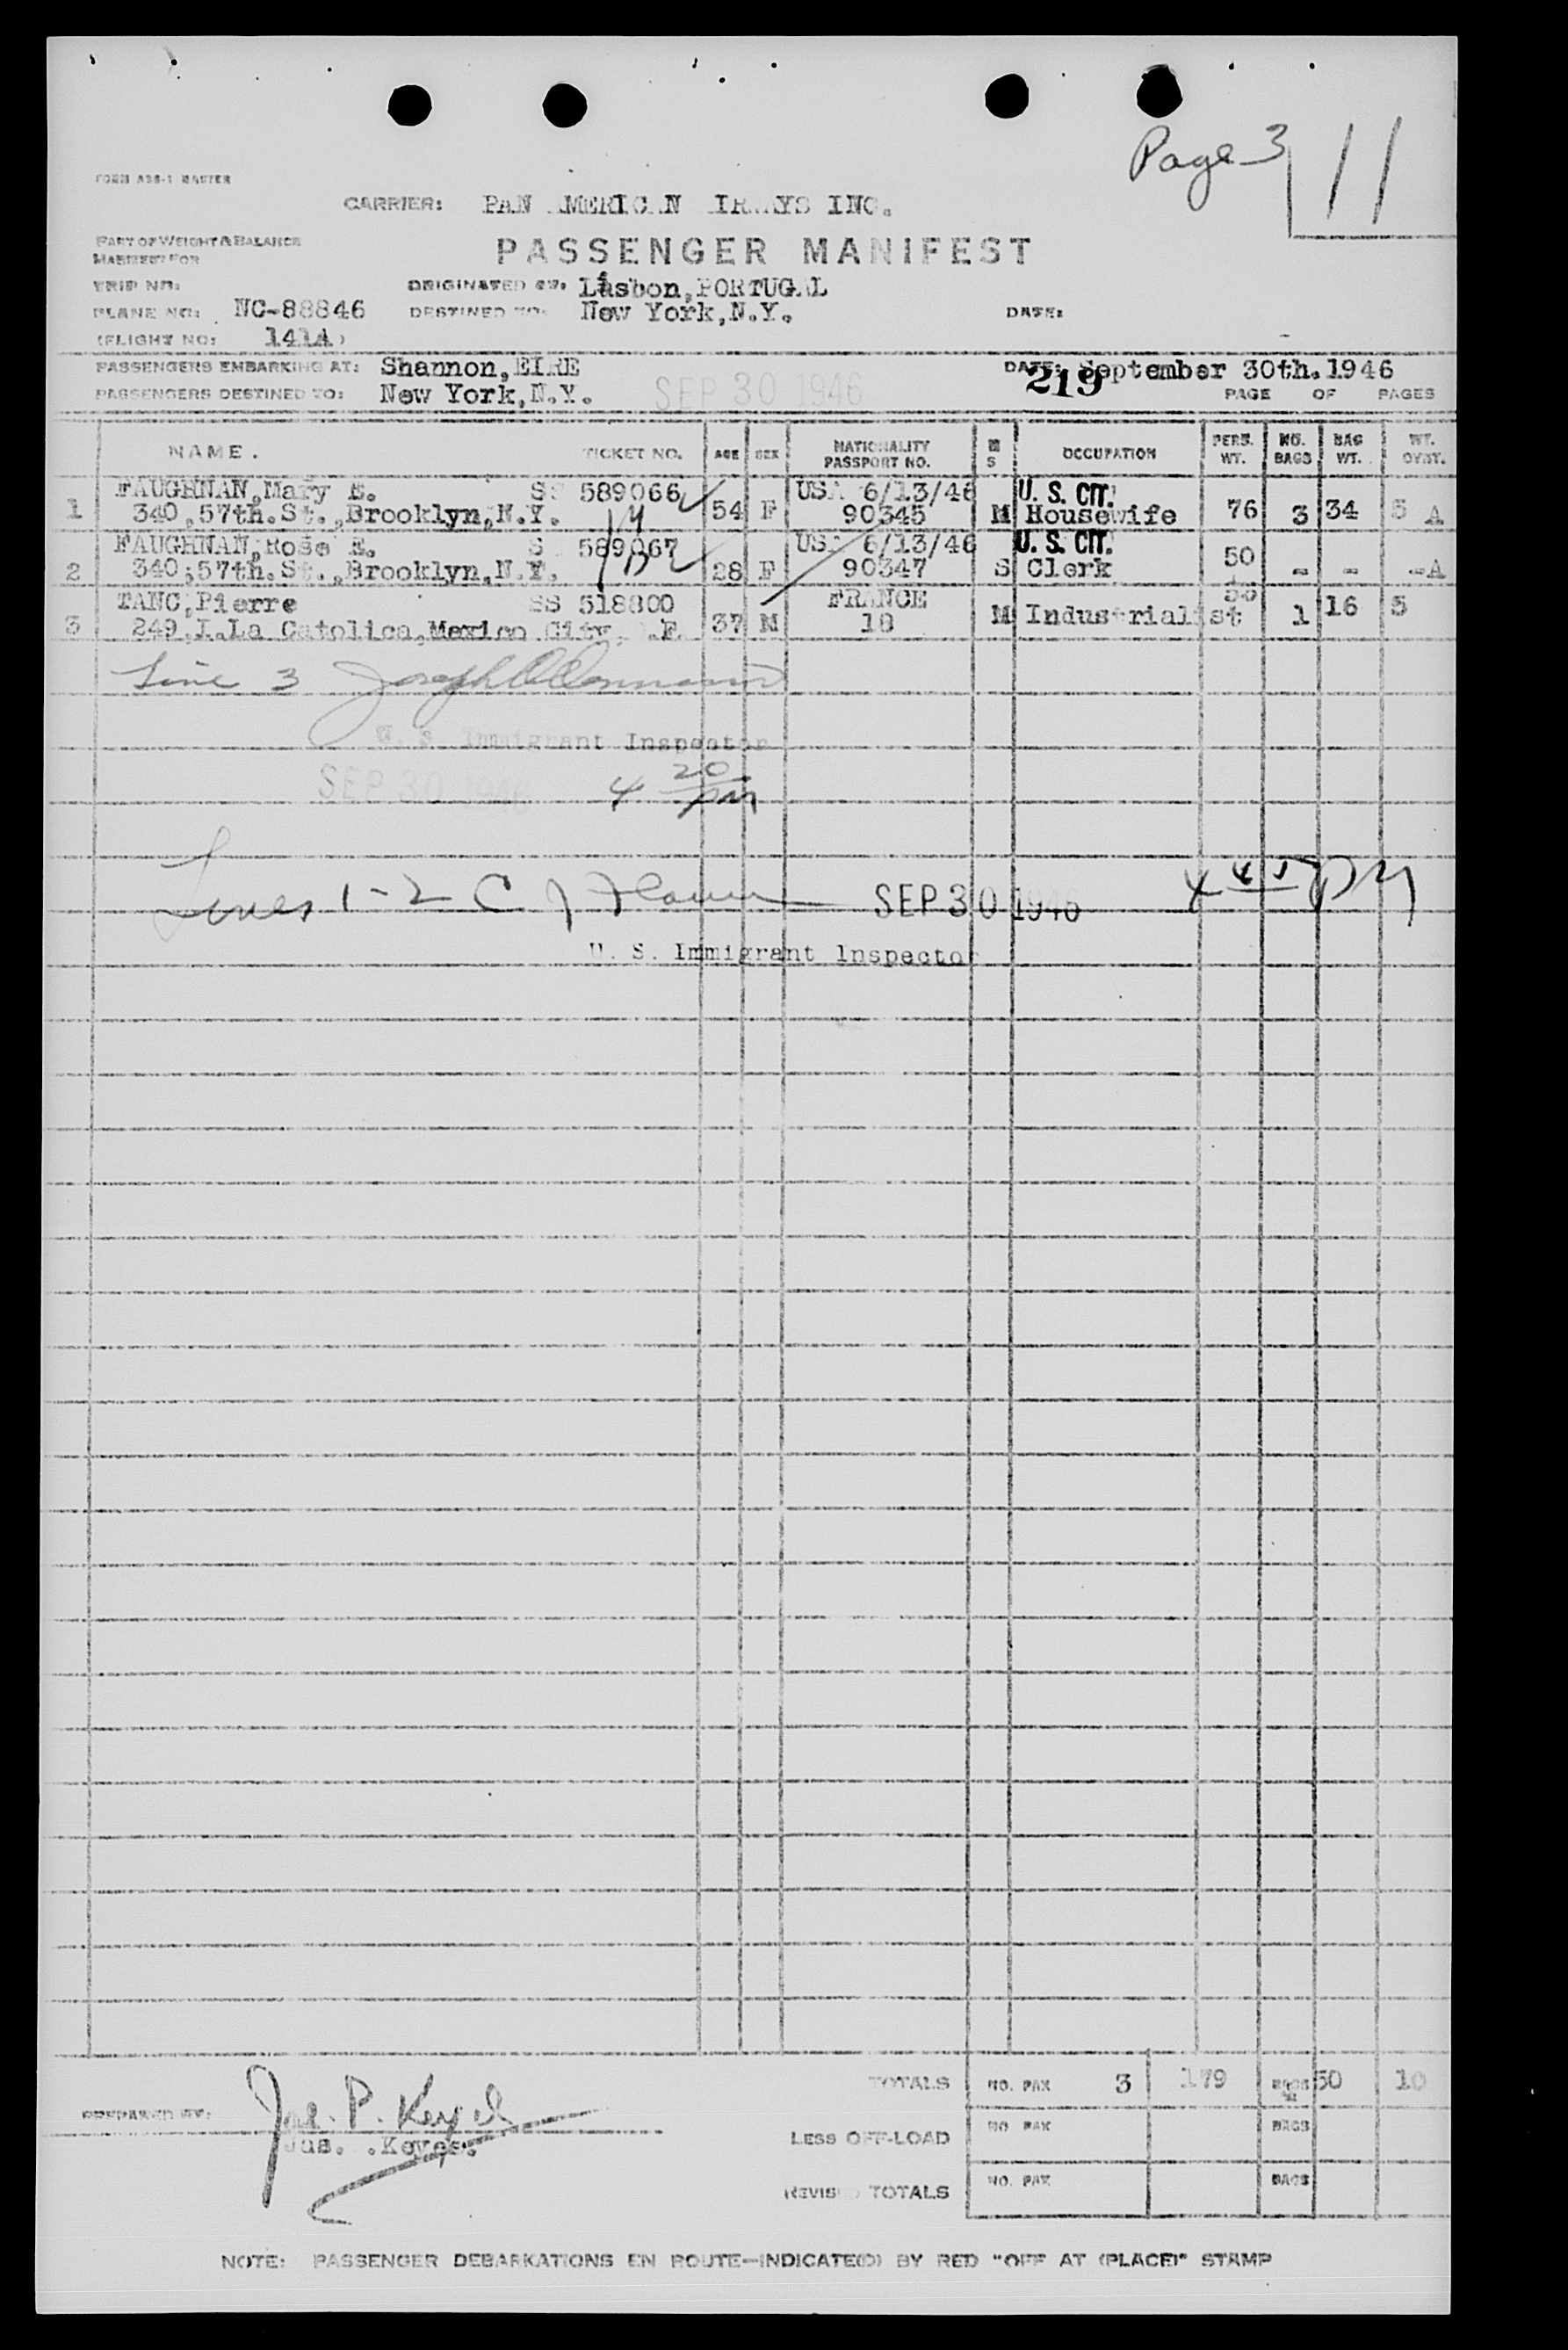 Page 3 11
FORM A36-1 MASTER
CARRIER: PAN AMERICAN AIRWAYS INC.
PART OF WEIGHT & BALANCE
MANIFEST FOR
PASSENGER MANIFEST
TRIP NO: ORIGINATED AT: Lisbon, PORTUGAL
PLANE NO: NC-88846 DESTINED TO: New York, N.Y. DATE:
(FLIGHT NO: 141A)
PASSENGERS EMBARKING AT: Shannon, EIRE DATE: September 30th. 1946
PASSENGERS DESTINED TO: New York, N.Y. SEP 30 1946 219 PAGE OF PAGES
NAME. TICKET NO. AGE SEX NATIONALITY PASSPORT NO. M S OCCUPATION PERS. WT. NO. BAGS BAG WT. WT. OVST.
FAUGHNAN, Mary E. SS 589066 USA 6/13/46 U. S. CIT.
1 340, 57th. St., Brooklyn, N.Y. 54 F 90345 M Housewife 76 3 34 5 A
FAUGHNAN, Rose E. S 589067 USA 6/13/46 U. S. CIT.
2 340; 57th. St., Brooklyn, N.Y. 28 F 90347 S Clerk 50 - - -A
TANC, Pierre SS 518800 FRANCE
3 249, I. La Catolica, Mexico City, .F 37 M 18 M Industrialist 1 16 5
Line 3 Joseph
U. S. Immigrant Inspector
SEP 30 1946 4 20 pm
Lines 1-2 C J SEP 30 1946 4 45 PM
U. S. Immigrant Inspector
TOTALS NO. PAX 3 179 BAGS 50 10
PREPARED BY: Jas. P. Keyes
Jas. .Keyes.
LESS OFF-LOAD NO PAX BAGS
REVISED TOTALS NO. PAX BAGS
NOTE: PASSENGER DEBARKATIONS EN ROUTE—INDICATE(D) BY RED "OFF AT (PLACE)" STAMP